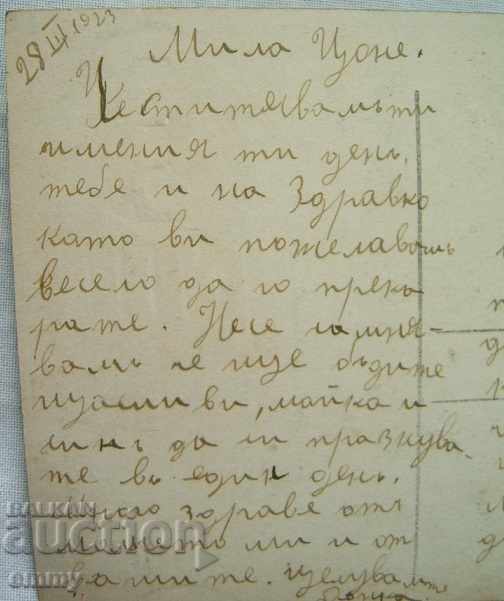 28 III 1923
Мила Цоне.
Честитявамъ ти
имения ти день,
тебе и на Здравко
като ви пожелавамъ
весело да го прека
рате. Несе сомня-
вамъ че ще бъдите
щасливи, майка и
синъ да ги празнува
те въ един день.
Много здраве отъ
ми и от
вашите. целувам те
BALKAN
auction
emmy